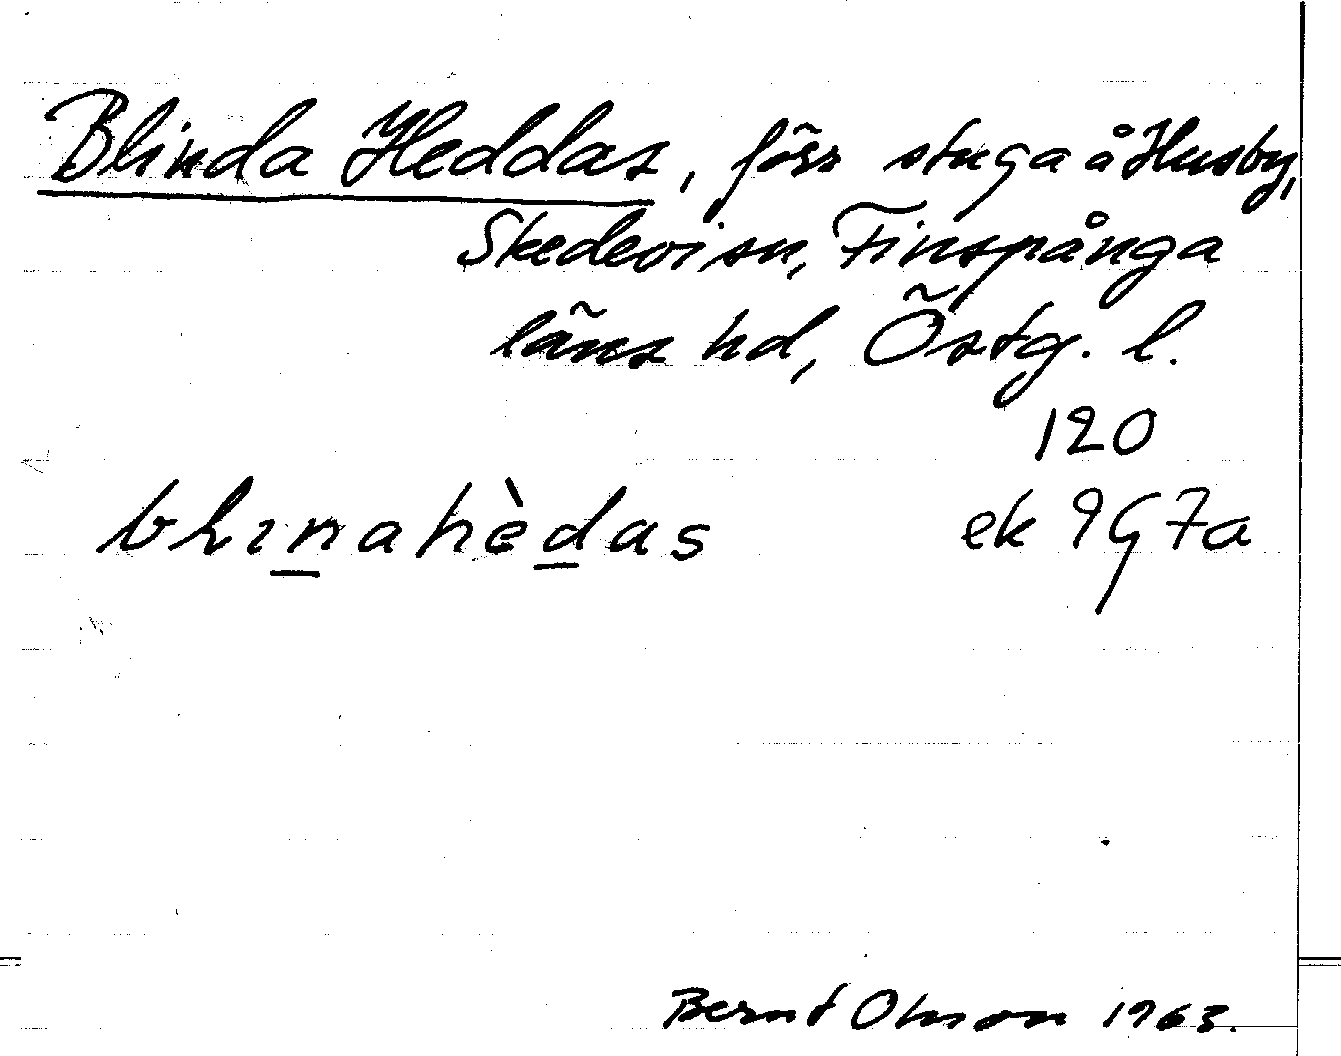 Blinda Heddas, förr stuga å Husby,
Skedevi sn, Finspånga
läns hd, Östg. l.
120
blınahèdas ek 9G7a
Bernt Olsson 1963.